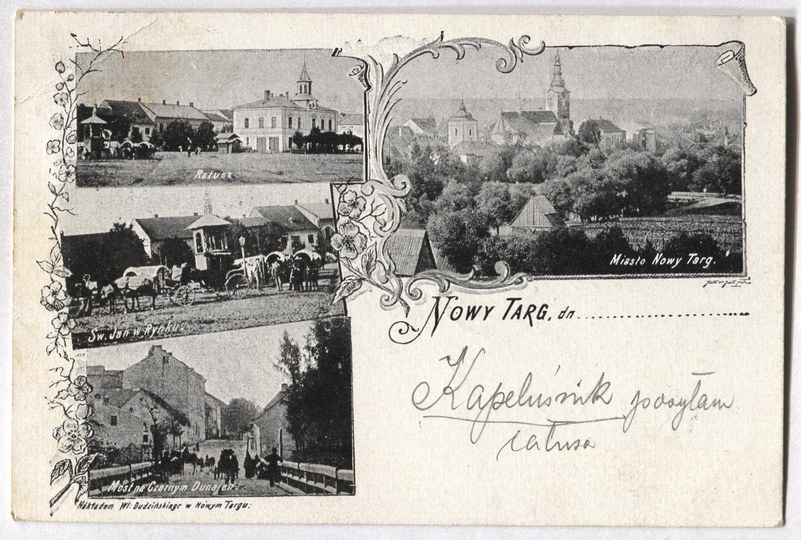 Ratusz.
Miasto Nowy Targ.
Św. Jan w Rynku.
NOWY TARG, dn
Kapeluśnik posyłam
całusa
Most na Czarnym Dunajcu.
Nakładem Wł. Dudzińskiego w Nowym Targu.